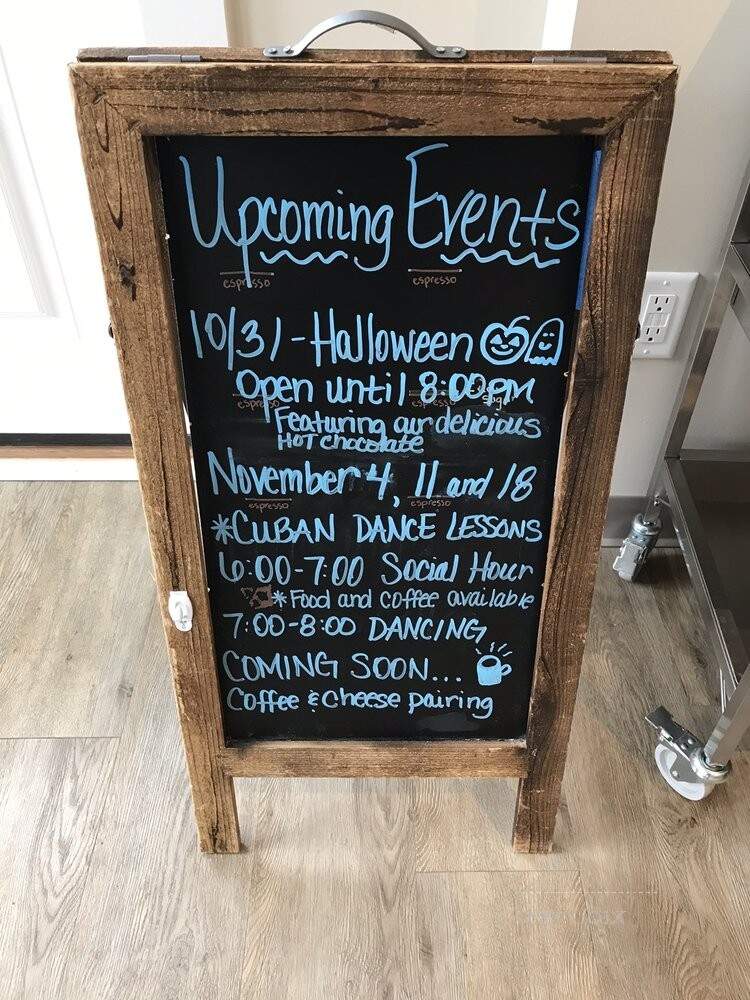 Upcoming Events
espresso espresso
10/31 - Halloween
Open until 8:00PM
espresso espresso
Featuring our delicious
HOT chocolate
November 4, 11 and 18
espresso espresso
*CUBAN DANCE LESSONS
6:00-7:00 Social Hour
*Food and coffee available
7:00-8:00 DANCING
COMING SOON...
Coffee & Cheese pairing